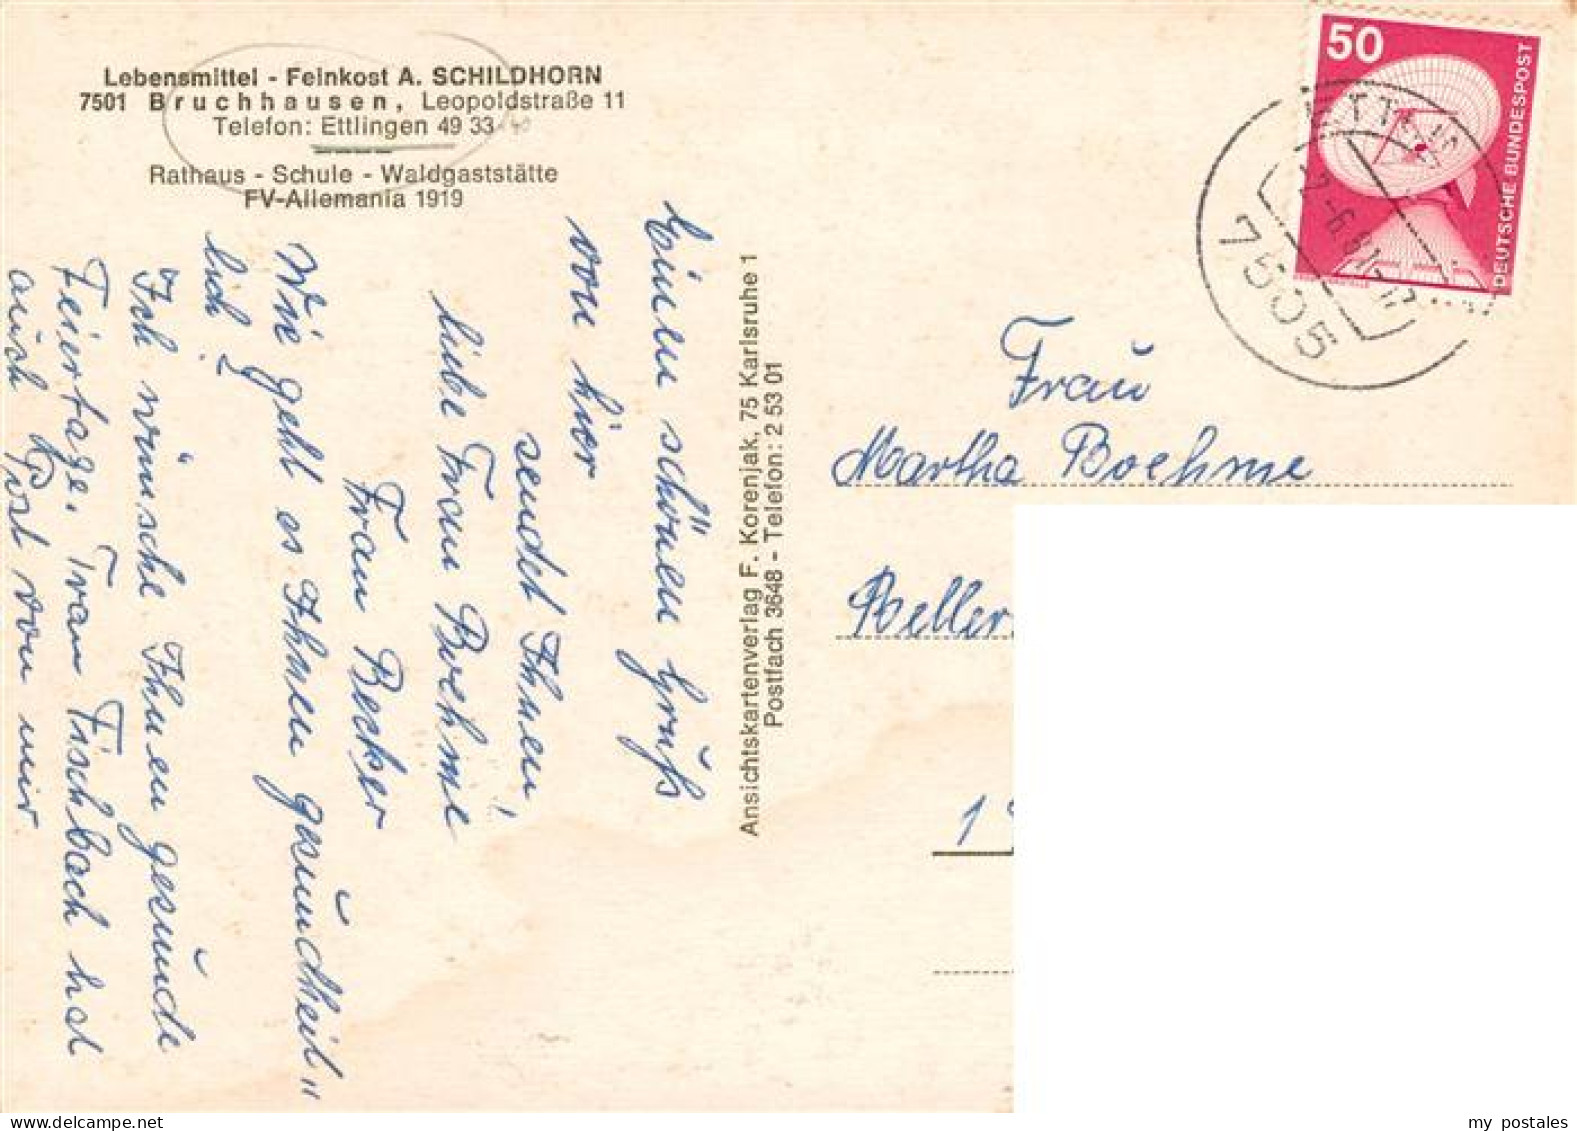 Lebensmittel - Feinkost A. SCHILDHORN
7501 Bruchhausen, Leopoldstraße 11
Telefon: Ettlingen 49 33
Rathaus - Schule - Waldgaststätte
FV-Allemania 1919
Einen schönen Gruß
von hier
sendet Ihnen,
liebe Frau Boehme
Frau Becker
Wie geht es Ihnen gesundheit"
lich?
Ich wünsche Ihnen gesunde
Feiertage. Frau Fischbach hat
auch Post von mir
Ansichtskartenverlag F. Korenjak, 75 Karlsruhe 1
Postfach 3648 - Telefon: 2 53 01
50
DEUTSCHE BUNDESPOST
7505
Frau
Martha Boehme
Beller
1
my postales